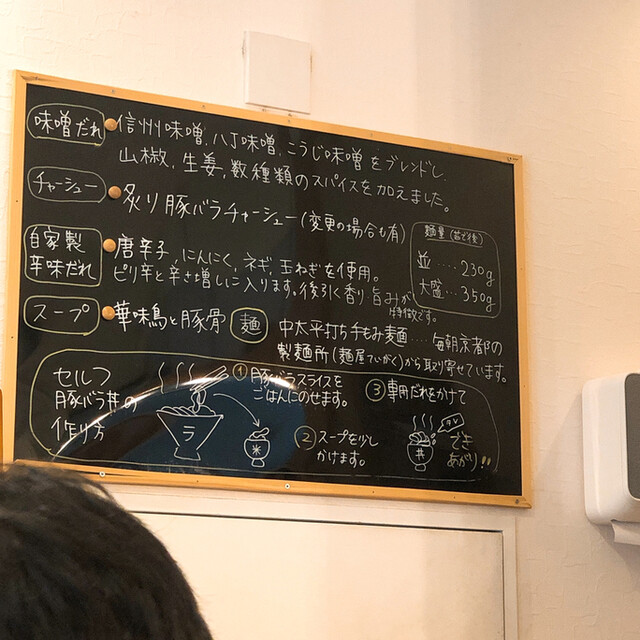 味噌だれ
信州味噌、八丁味噌、こうじ味噌をブレンドし、
山椒、生姜、数種類のスパイスを加えました。
チャーシュー
炙り豚バラチャーシュー(変更の場合も有)
麺量(茹で後)
並‥‥230g
大盛‥350g
自家製
辛味だれ
唐辛子、にんにく、ネギ、玉ねぎを使用。
ピリ辛と辛さ増しに入ります。後引く香り旨みが
特徴です。
スープ
華味鳥と豚骨
麺
中太平打ち手もみ麺‥‥毎朝京都の
製麺所(麺屋ていがく)から取り寄せています。
セルフ
豚バラ丼の
作り方
①豚バラスライスを
ごはんにのせます。
ラ
米
②スープを少し
かけます。
③専用だれをかけて
タレ
丼
でき
あがり!!